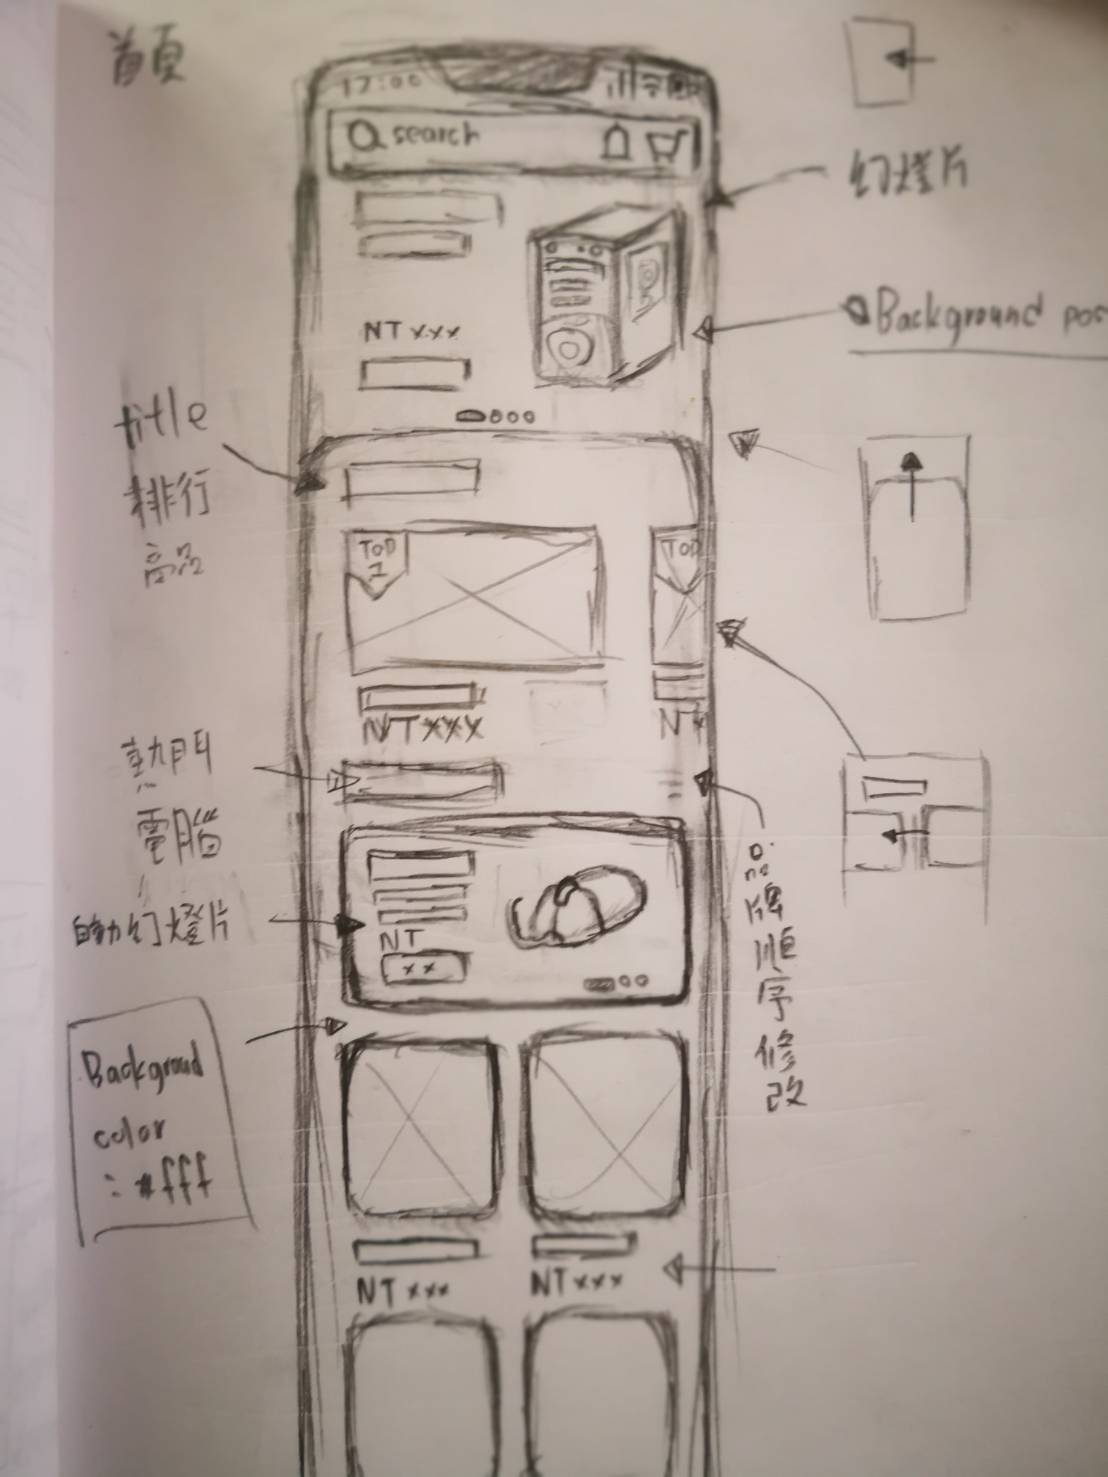 首頁
17:00
search
幻燈片
NT xxx
Background pos
title
排行
商品
TOP
1
TOP
NTxxx
NT
熱門
電腦
自動幻燈片
NT
xx
品牌順序修改
Backgroud
color
: #fff
NT xxx
NT xxx